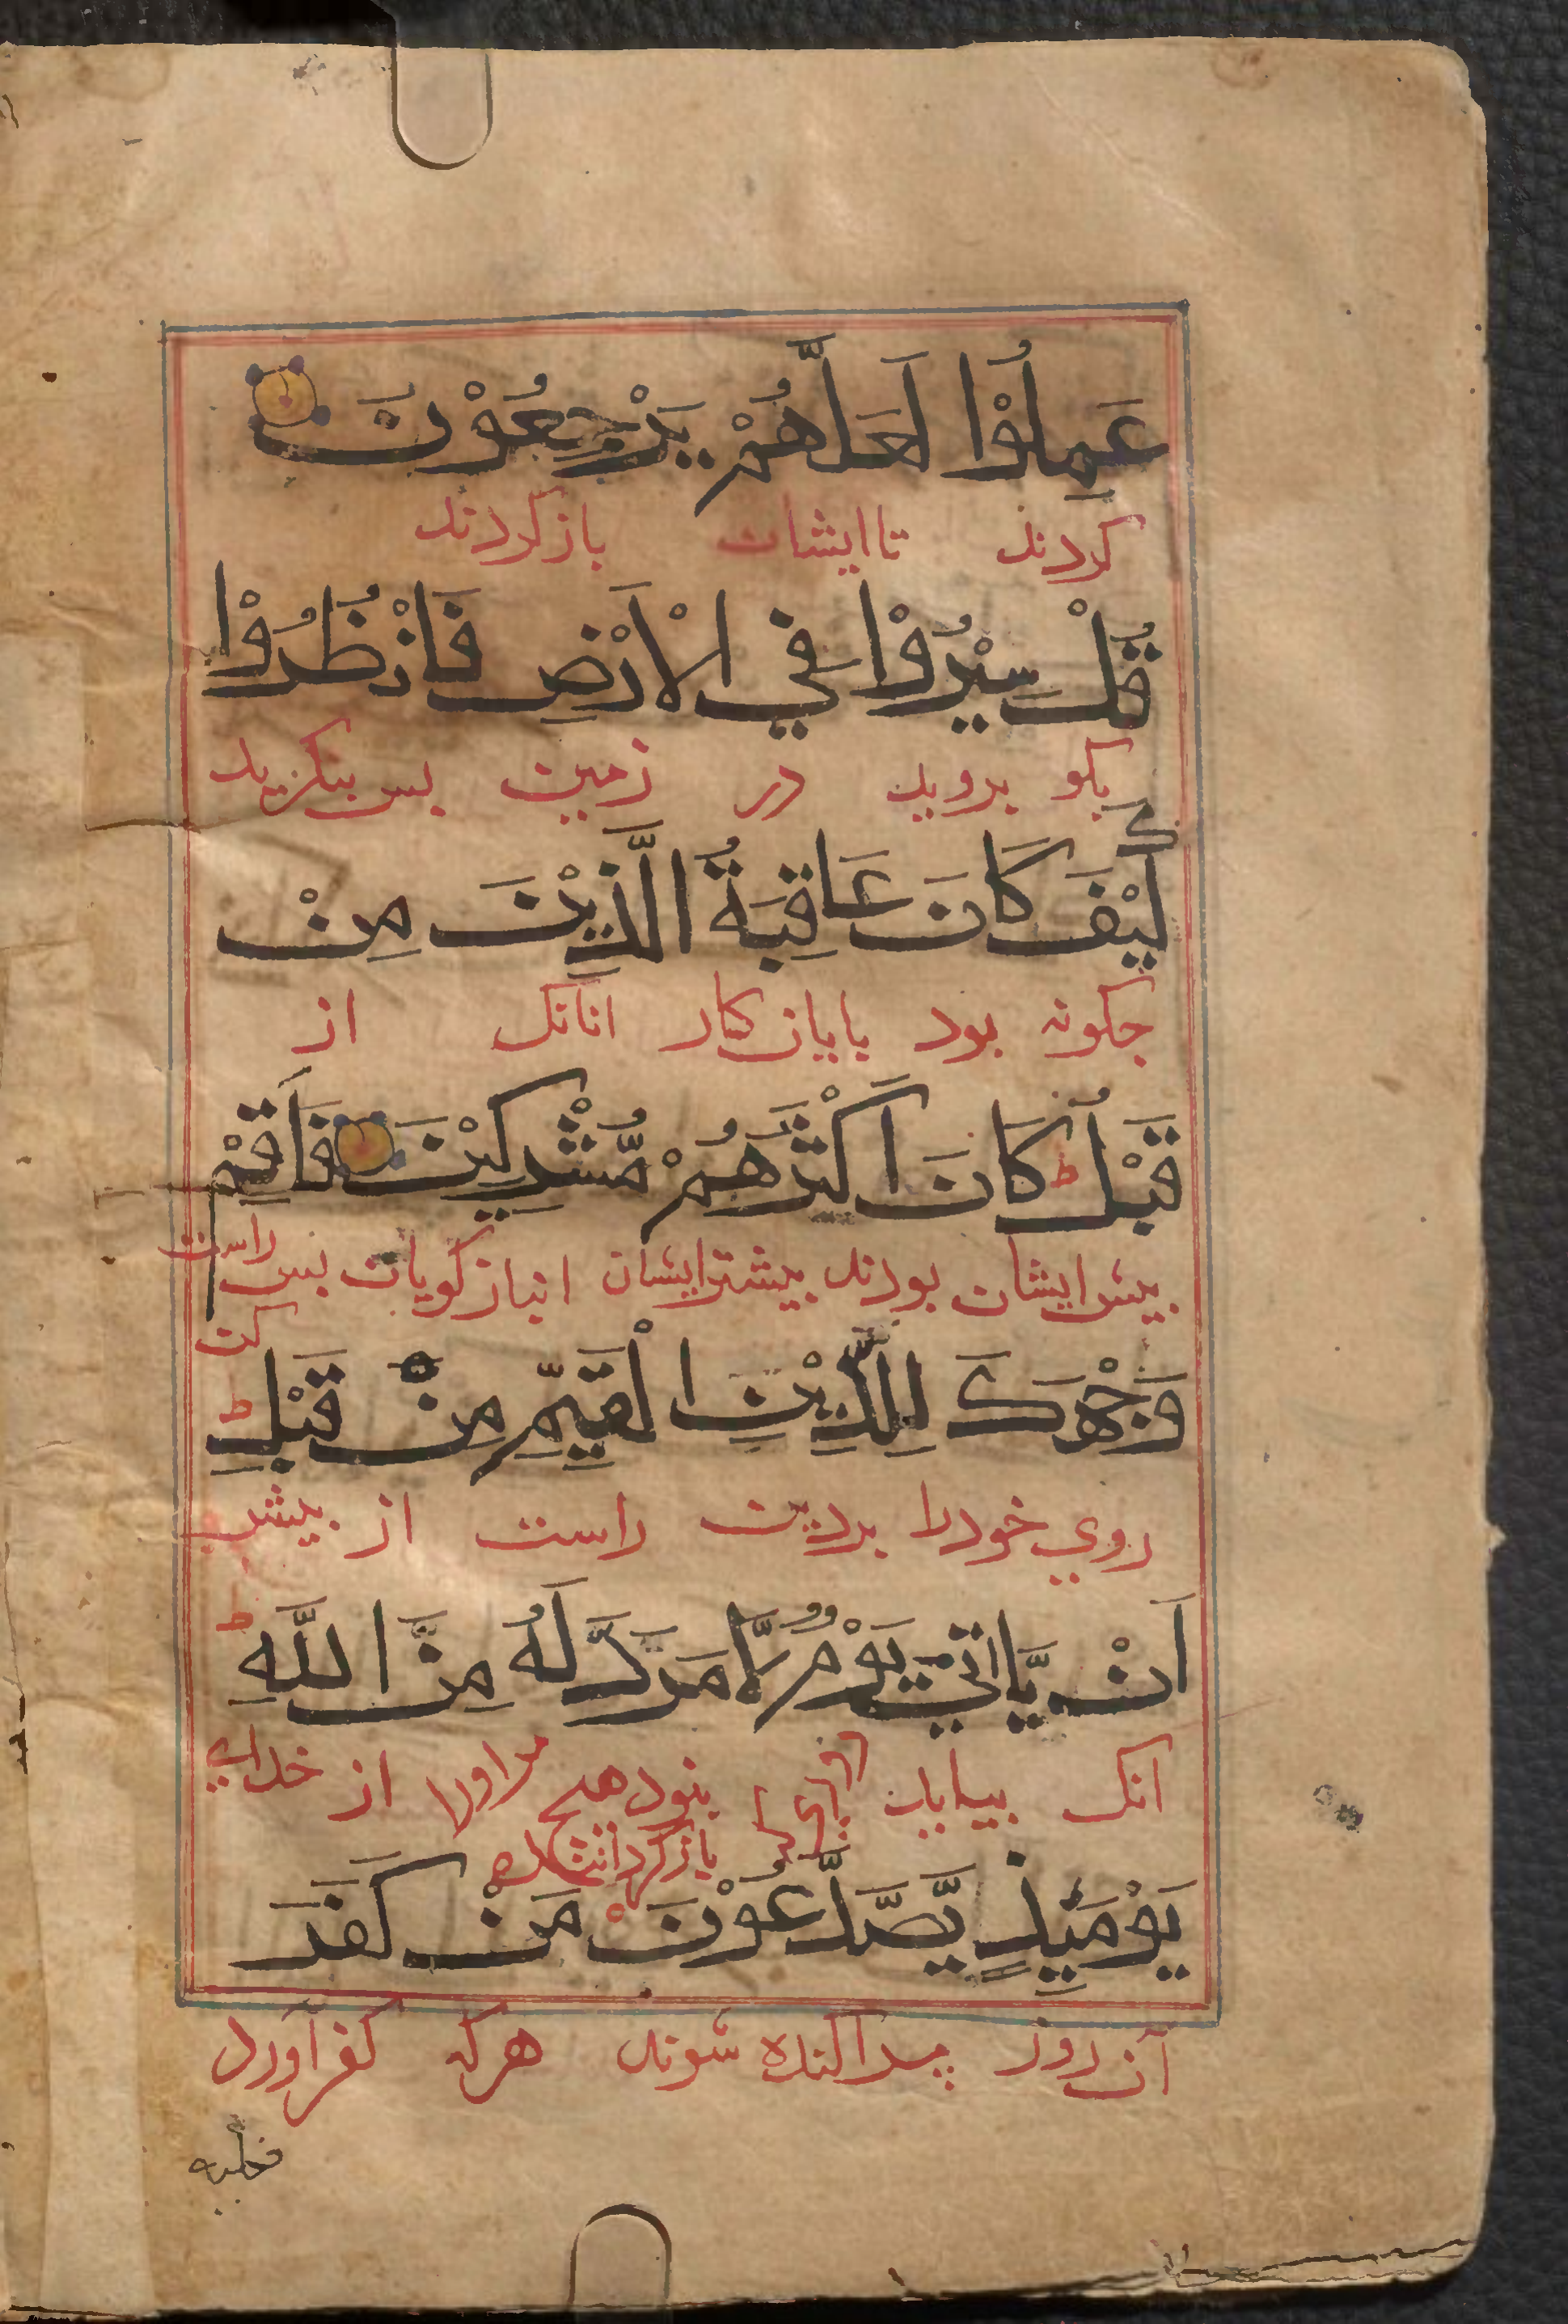 عَمِلُوْا لَعَلَّهُمْ يَرْجِعُوْنَ
کردند تا ایشان باز کردند
قُلْ سِيْرُوْا فِي الْاَرْضِ فَانْظُرُوْا
بکو بروید در زمین بس بنکرید
كَيْفَ كَانَ عَاقِبَةُ الَّذِيْنَ مِنْ
جکونه بود بایان کار انانک از
قَبْلُ ط كَانَ اَكْثَرُهُمْ مُّشْرِكِيْنَ فَاَقِمْ
بیش ایشان بودند بیشتر ایشان انباز کویان بس راست
کن
وَجْهَكَ لِلدِّيْنِ الْقَيِّمِ مِنْ قَبْلِ ط
روي خود را بردین راست از بیش
اَنْ يَّاتِيَ يَوْمٌ لَّا مَرَدَّ لَهُ مِنَ اللّٰهِ ط
انک بیاید روزی که بنود هیج مر او را از خدای
باز کردانند
يَوْمَئِذٍ يَّصَّدَّعُوْنَ مَنْ كَفَرَ
آن روز پراکنده شوند هرکه کفر آورد
فعليه